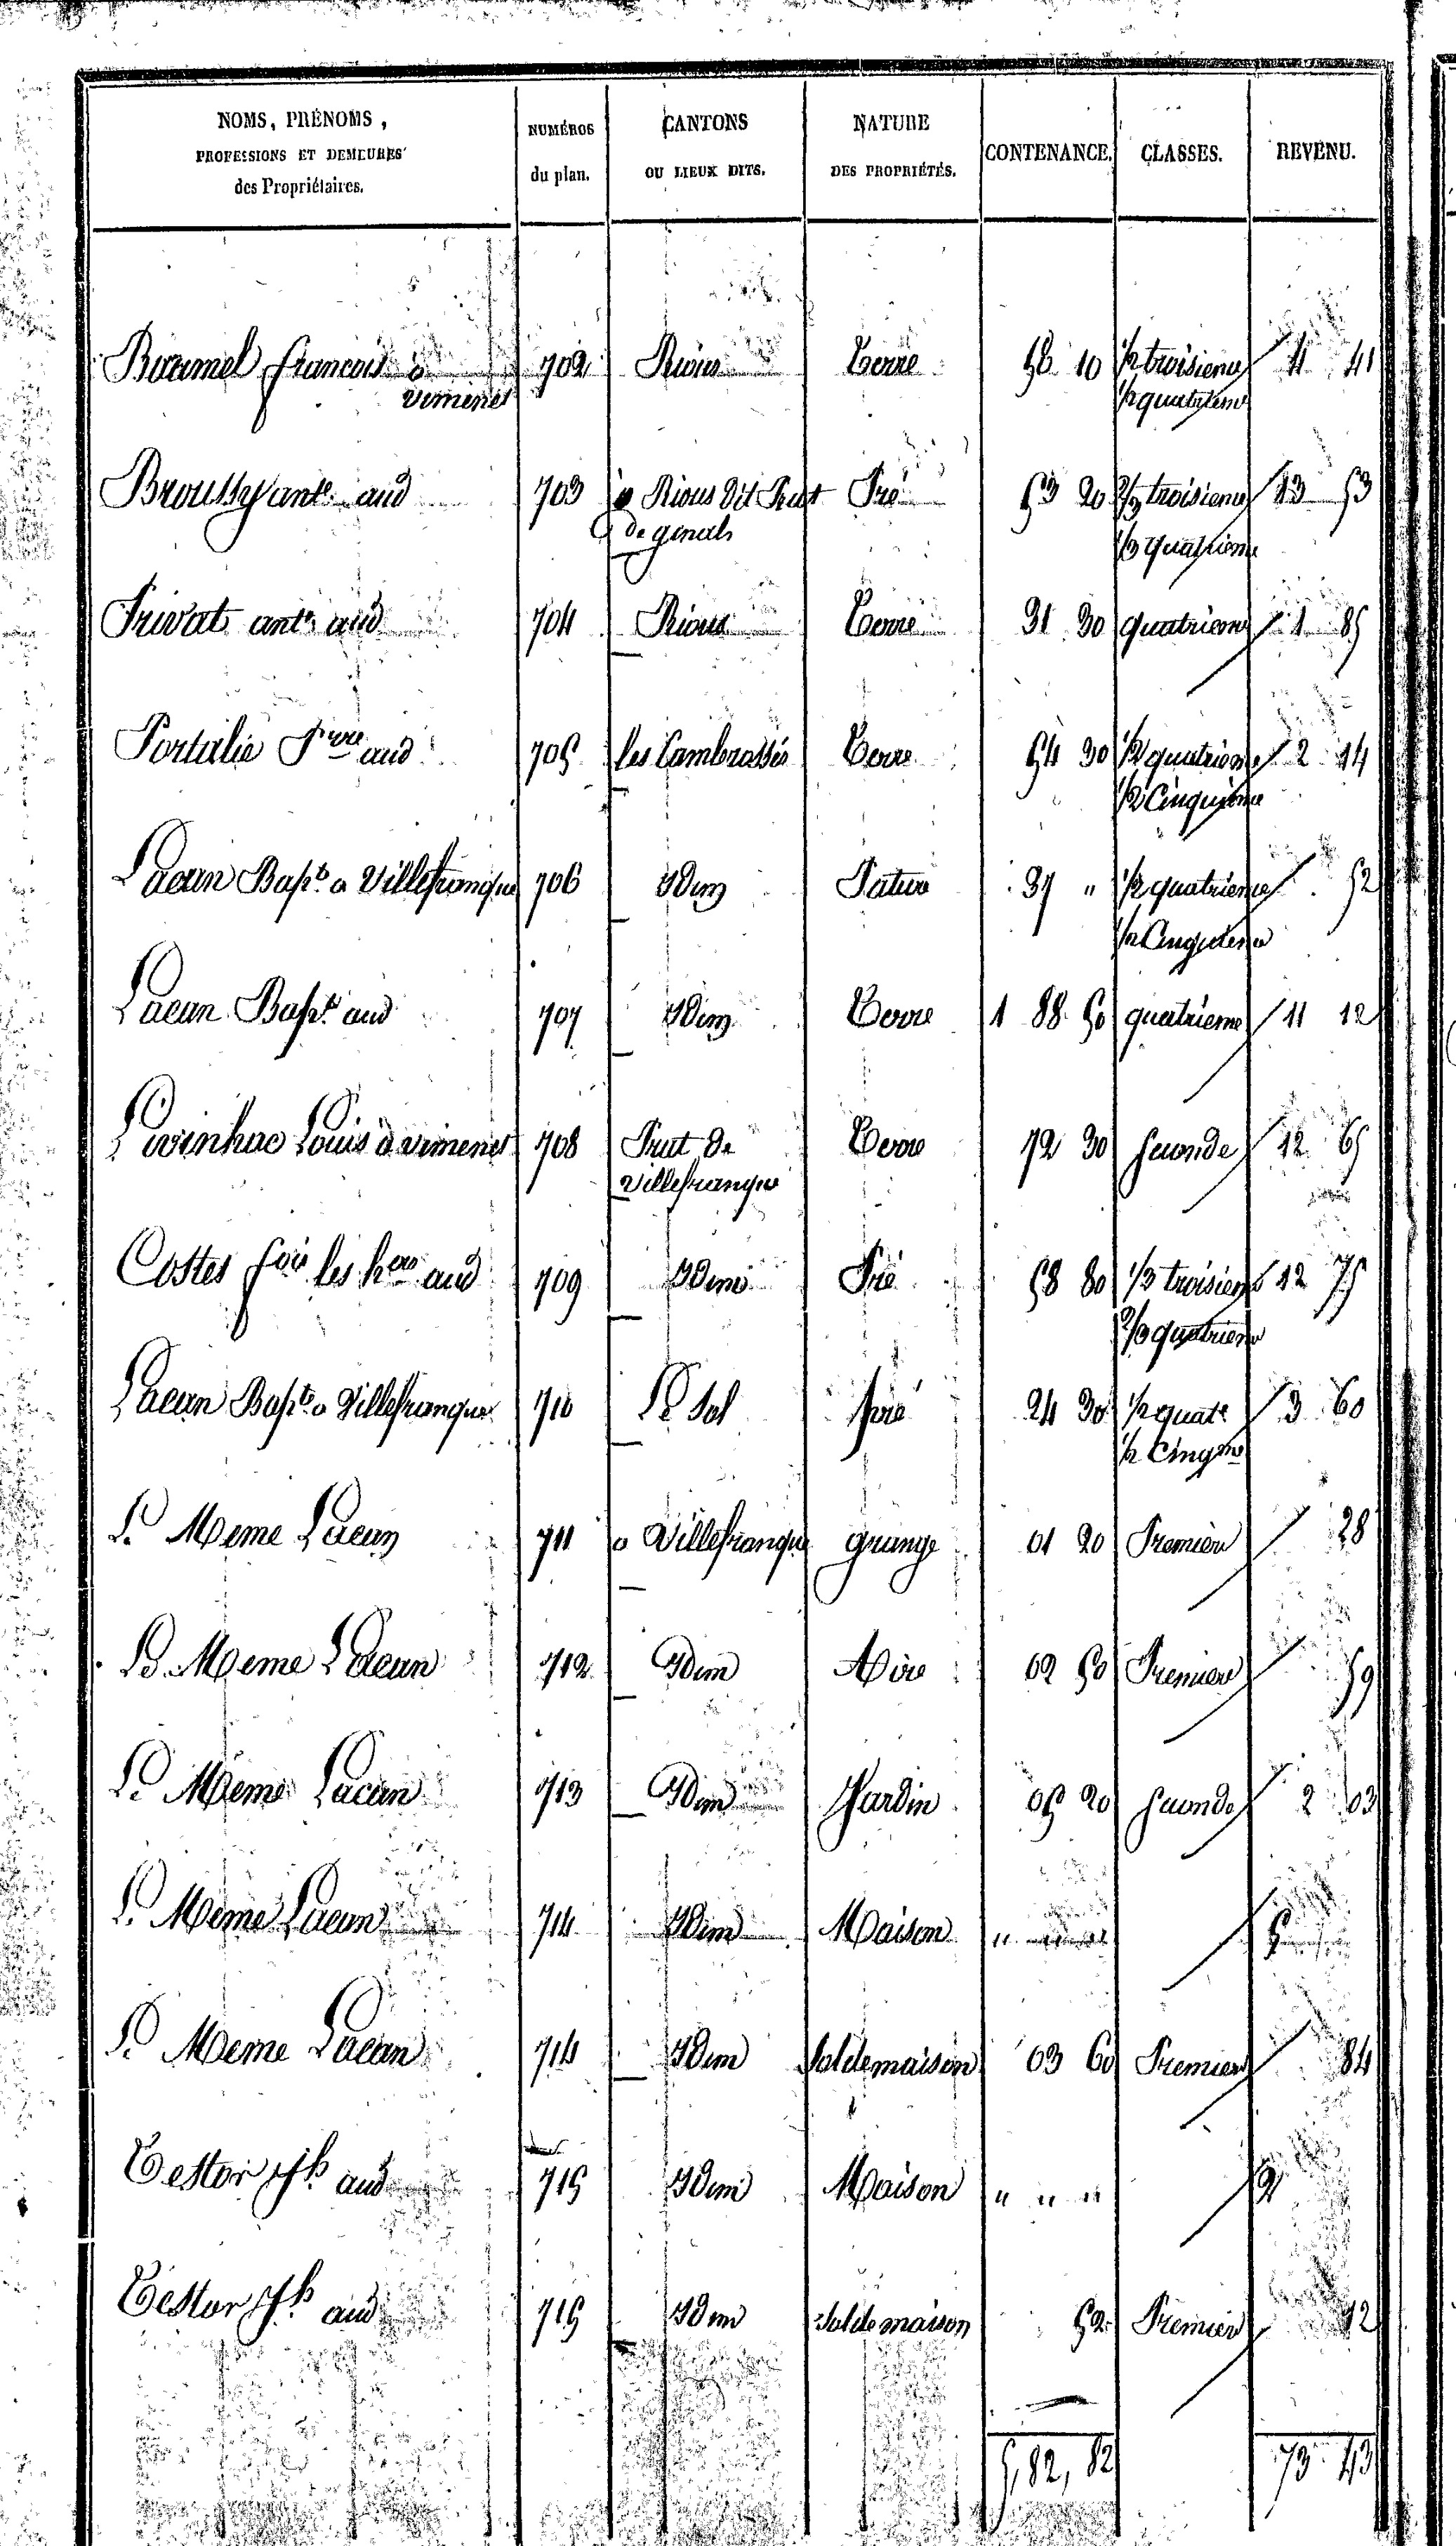 NOMS, PRÉNOMS,
PROFESSIONS ET DEMEURES
des Propriétaires.
NUMÉROS
du plan.
CANTONS
OU LIEUX DITS.
NATURE
DES PROPRIÉTÉS.
CONTENANCE.
CLASSES.
REVENU.
francois à 702 Rious Terre 10 1/2 troisieme 4 41
vimenet 1/2 quatrieme
Broussy ant.e aud 703 Rious dit Prat Pré 53 20 2/3 troisieme 13 53
de ginals 1/3 quatrieme
Privat ant.e aud 704 Rious Terre 31 30 quatrieme 1 85
Portalié P.rre aud 705 les Cambrassés Terre 54 30 1/2 quatrieme 2 14
1/2 Cinquieme
Lacan Bap.te a Villefranque 706 Idem Pature 37 " 1/2 quatrieme 52
1/2 Cinquieme
Lacan Bap.te aud 707 Idem Terre 1 88 50 quatrieme 11 12
Lavinhac Louis à vimenet 708 Prat de Terre 72 30 seconde 12 65
villefranque
Costes f.ois les h.ers aud 709 Idem Pré 58 80 1/3 troisieme 12 75
2/3 quatrieme
Lacan Bap.te a Villefranque 710 Le Sol pré 24 30 1/2 quat.e 3 60
1/2 Cinq.me
Le Meme Lacan 711 a Villefranque grange 01 20 Premiere 28
Le Meme Lacan 712 Idem Aire 02 50 Premiere 59
Le Meme Lacan 713 Idem Jardin 05 20 seconde 2 03
Le Meme Lacan 714 Idem Maison " " "
Le Meme Lacan 714 Idem Sol de maison 03 60 Premiere 84
Testor J.h aud 715 Idem Maison " " "
Testor J.h aud 715 Idem Sol de maison 52 Premiere 12
5,82,82 73 43